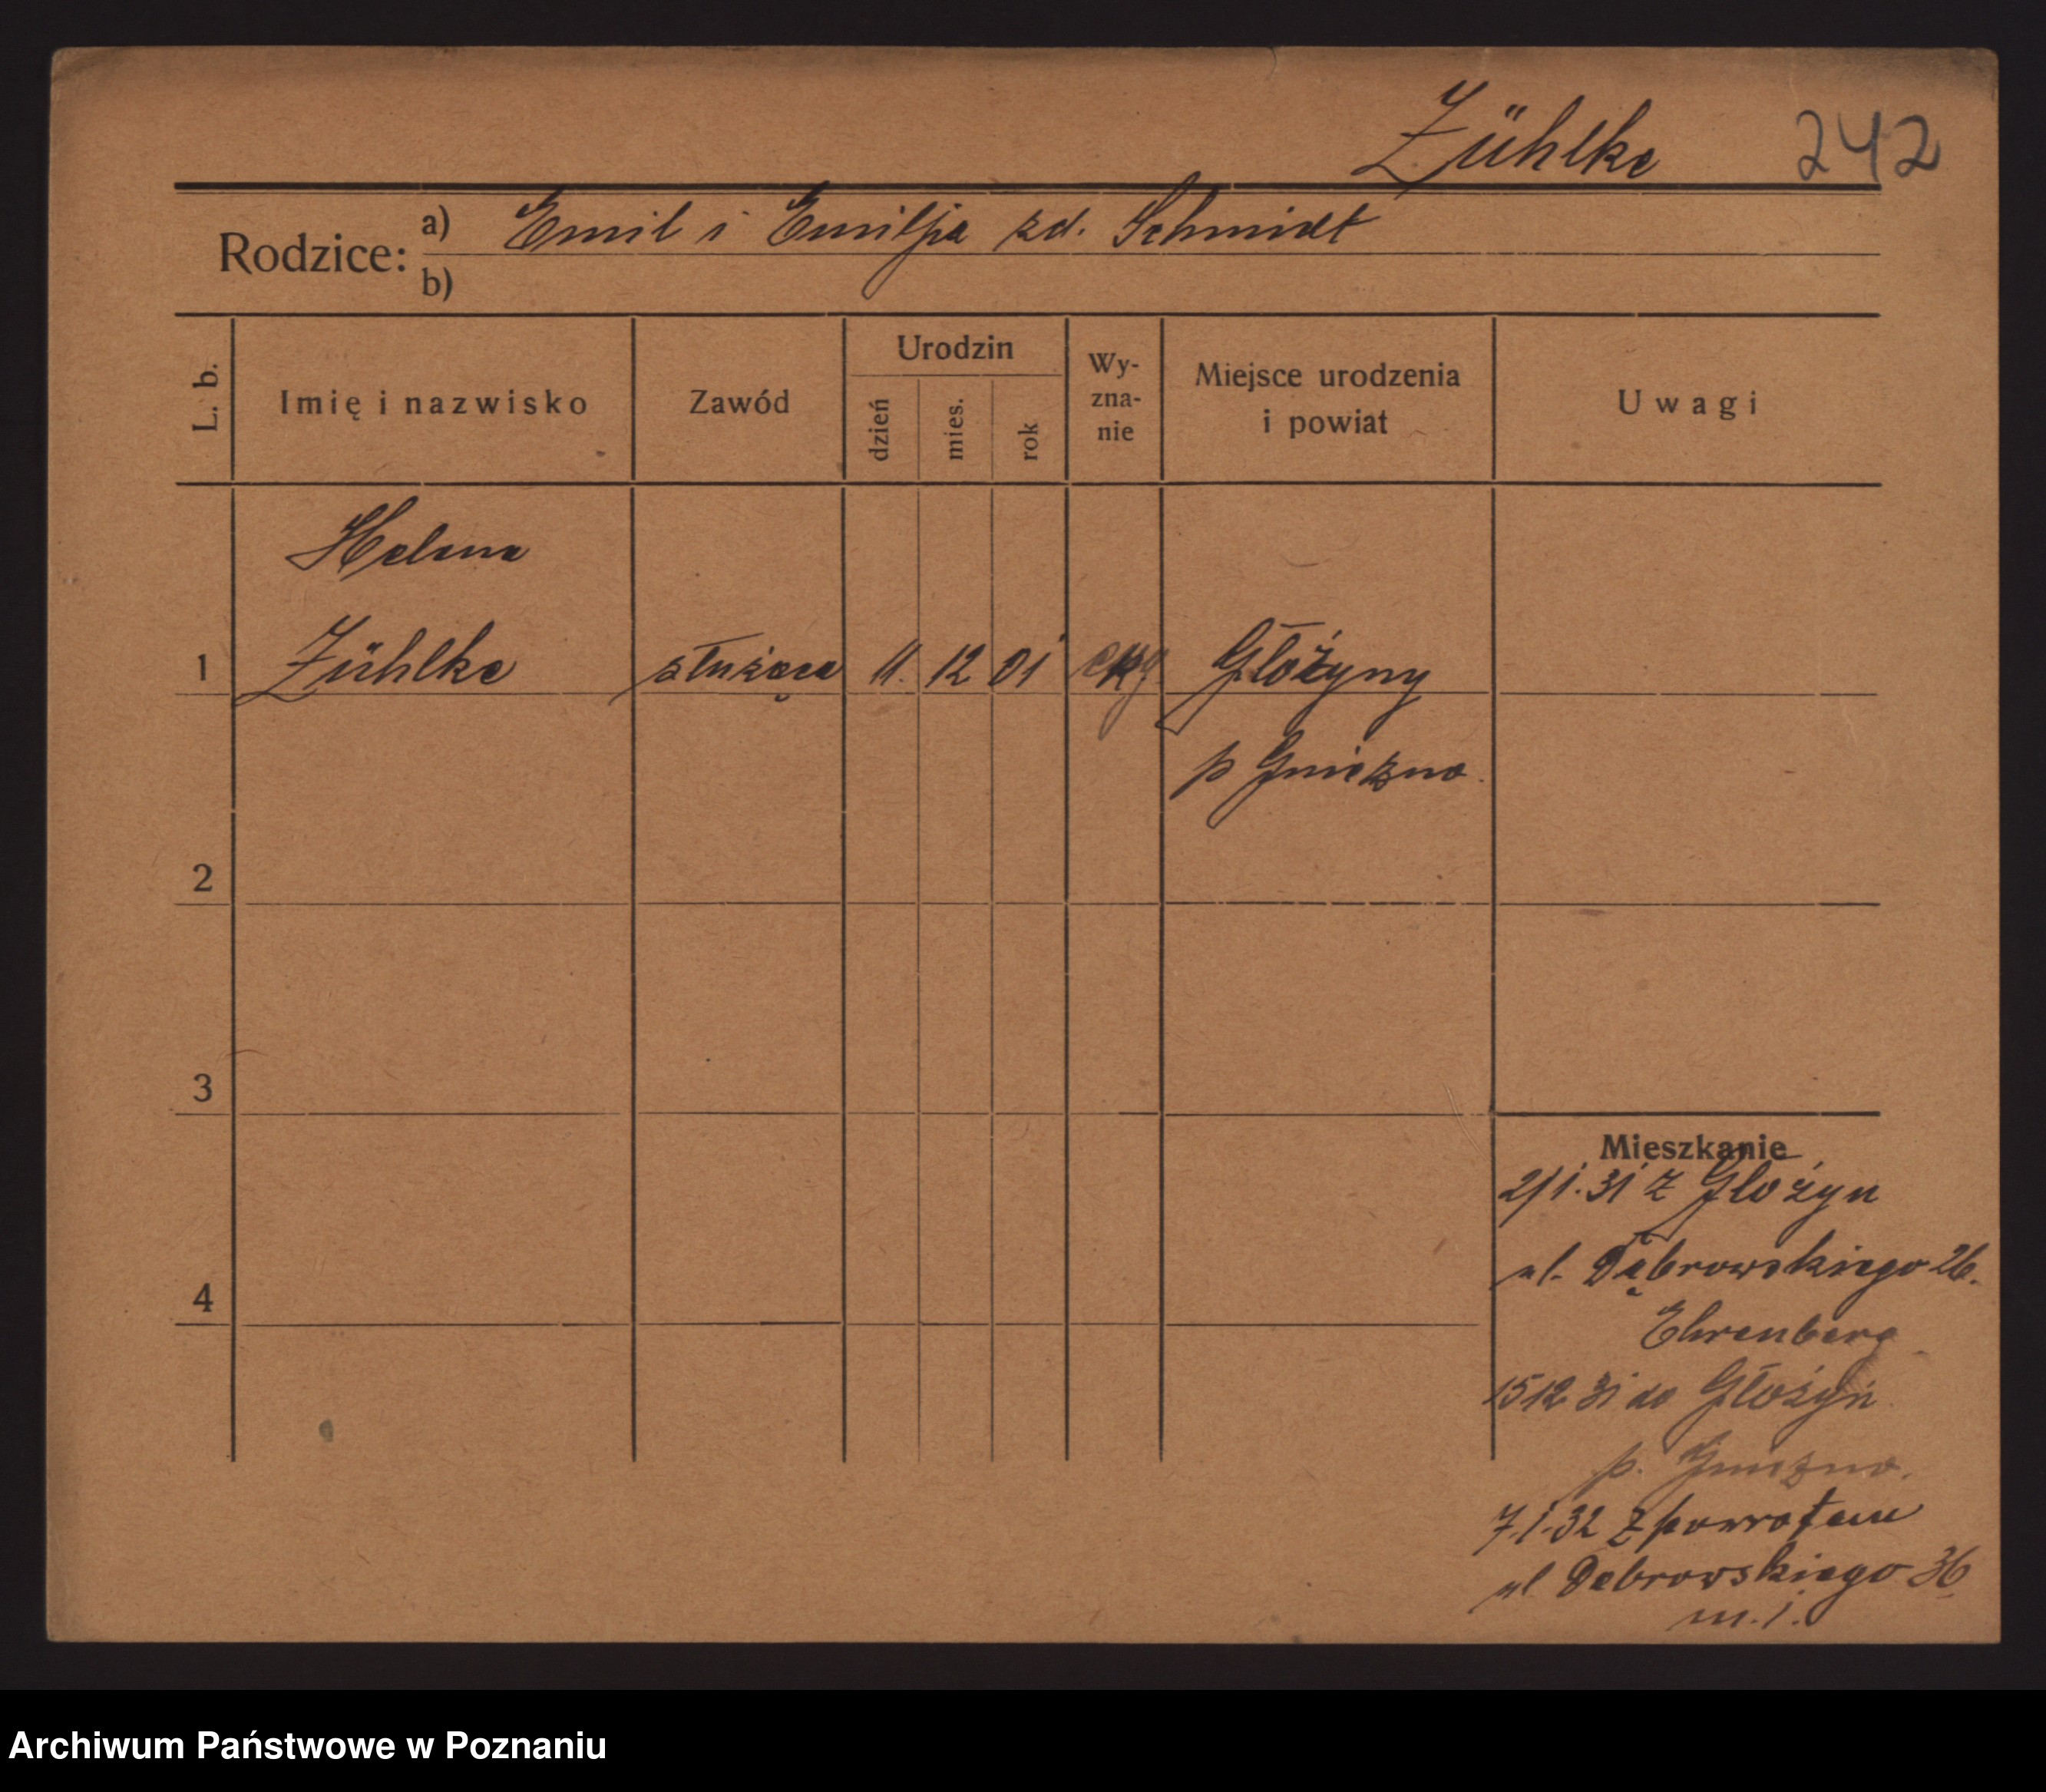 Zühlke 242
Rodzice: a) Emil i Emilja zd. Schmidt
b)
L. b. Imię i nazwisko Zawód Urodzin dzień mies. rok Wy-zna-nie Miejsce urodzenia i powiat Uwagi
Helena
1 Zühlke służąca 11. 12 01 Głożyny
p Gniezno.
2
3
4
Mieszkanie
2/1.31 z Głożyn
ul. Dąbrowskiego 26.
Ehrenberg
15 12 31 do Głożyn
p. Gniezno.
7.1.32 z powrotem
ul Dąbrowskiego 36
m. 1.
Archiwum Państwowe w Poznaniu